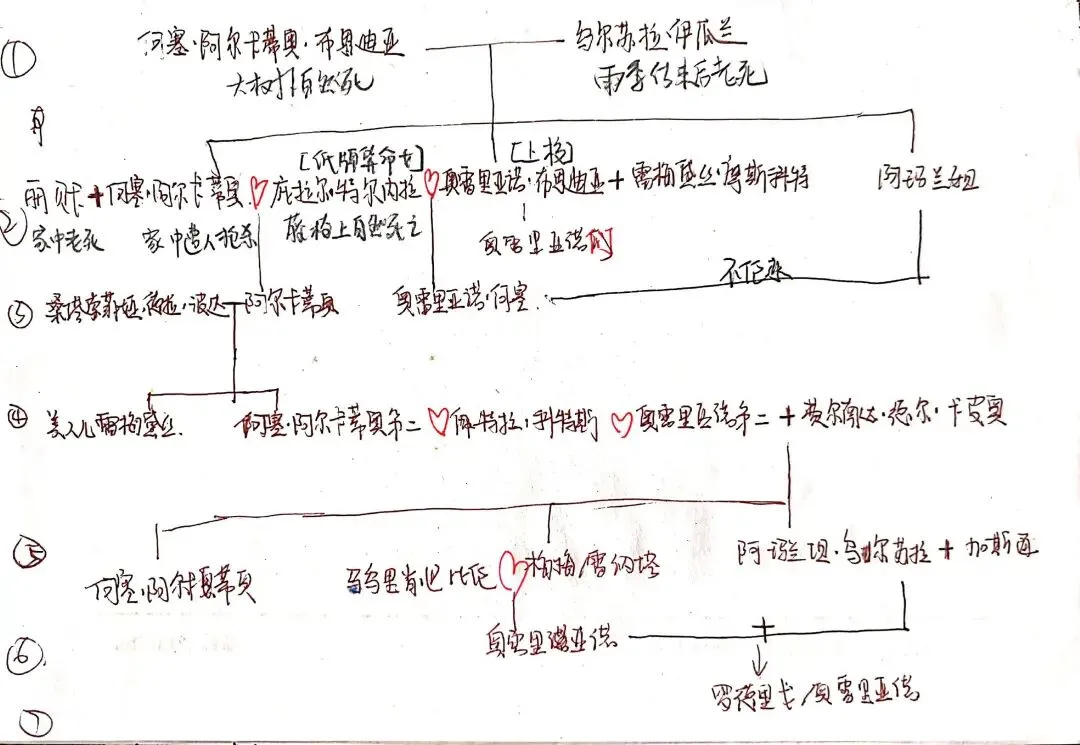 ① 何塞·阿尔卡蒂奥·布恩迪亚 乌尔苏拉·伊瓜兰
大树下自然死 雨季结束后老死
[纸牌算命女] [上校]
② 丽贝卡+何塞·阿尔卡蒂奥 庇拉尔·特尔内拉 奥雷里亚诺·布恩迪亚+雷梅黛丝·摩斯科特 阿玛兰妲
家中老死 家中遭人枪杀 藤椅上自然死亡
奥雷里亚诺
不伦恋
③ 桑塔索菲娅·德拉·波达 阿尔卡蒂奥 奥雷里亚诺·何塞
④ 美人儿雷梅黛丝 何塞·阿尔卡蒂奥第二 佩特拉·科特斯 奥雷里亚诺第二+费尔南达·德尔·卡皮奥
⑤ 何塞·阿尔卡蒂奥 马乌里肖·巴比伦 梅梅·雷纳塔 阿玛兰妲·乌尔苏拉+加斯通
⑥ 奥雷里亚诺 +
⑦ 罗德里戈/奥雷里亚诺